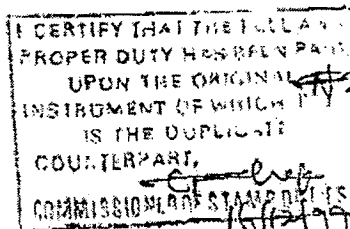 I CERTIFY THAT THE FULL AND
PROPER DUTY HAS BEEN PAID
UPON THE ORIGINAL
INSTRUMENT OF WHICH
IS THE DUPLICATE
COUNTERPART,
COMMISSIONER OF STAMP DUTIES